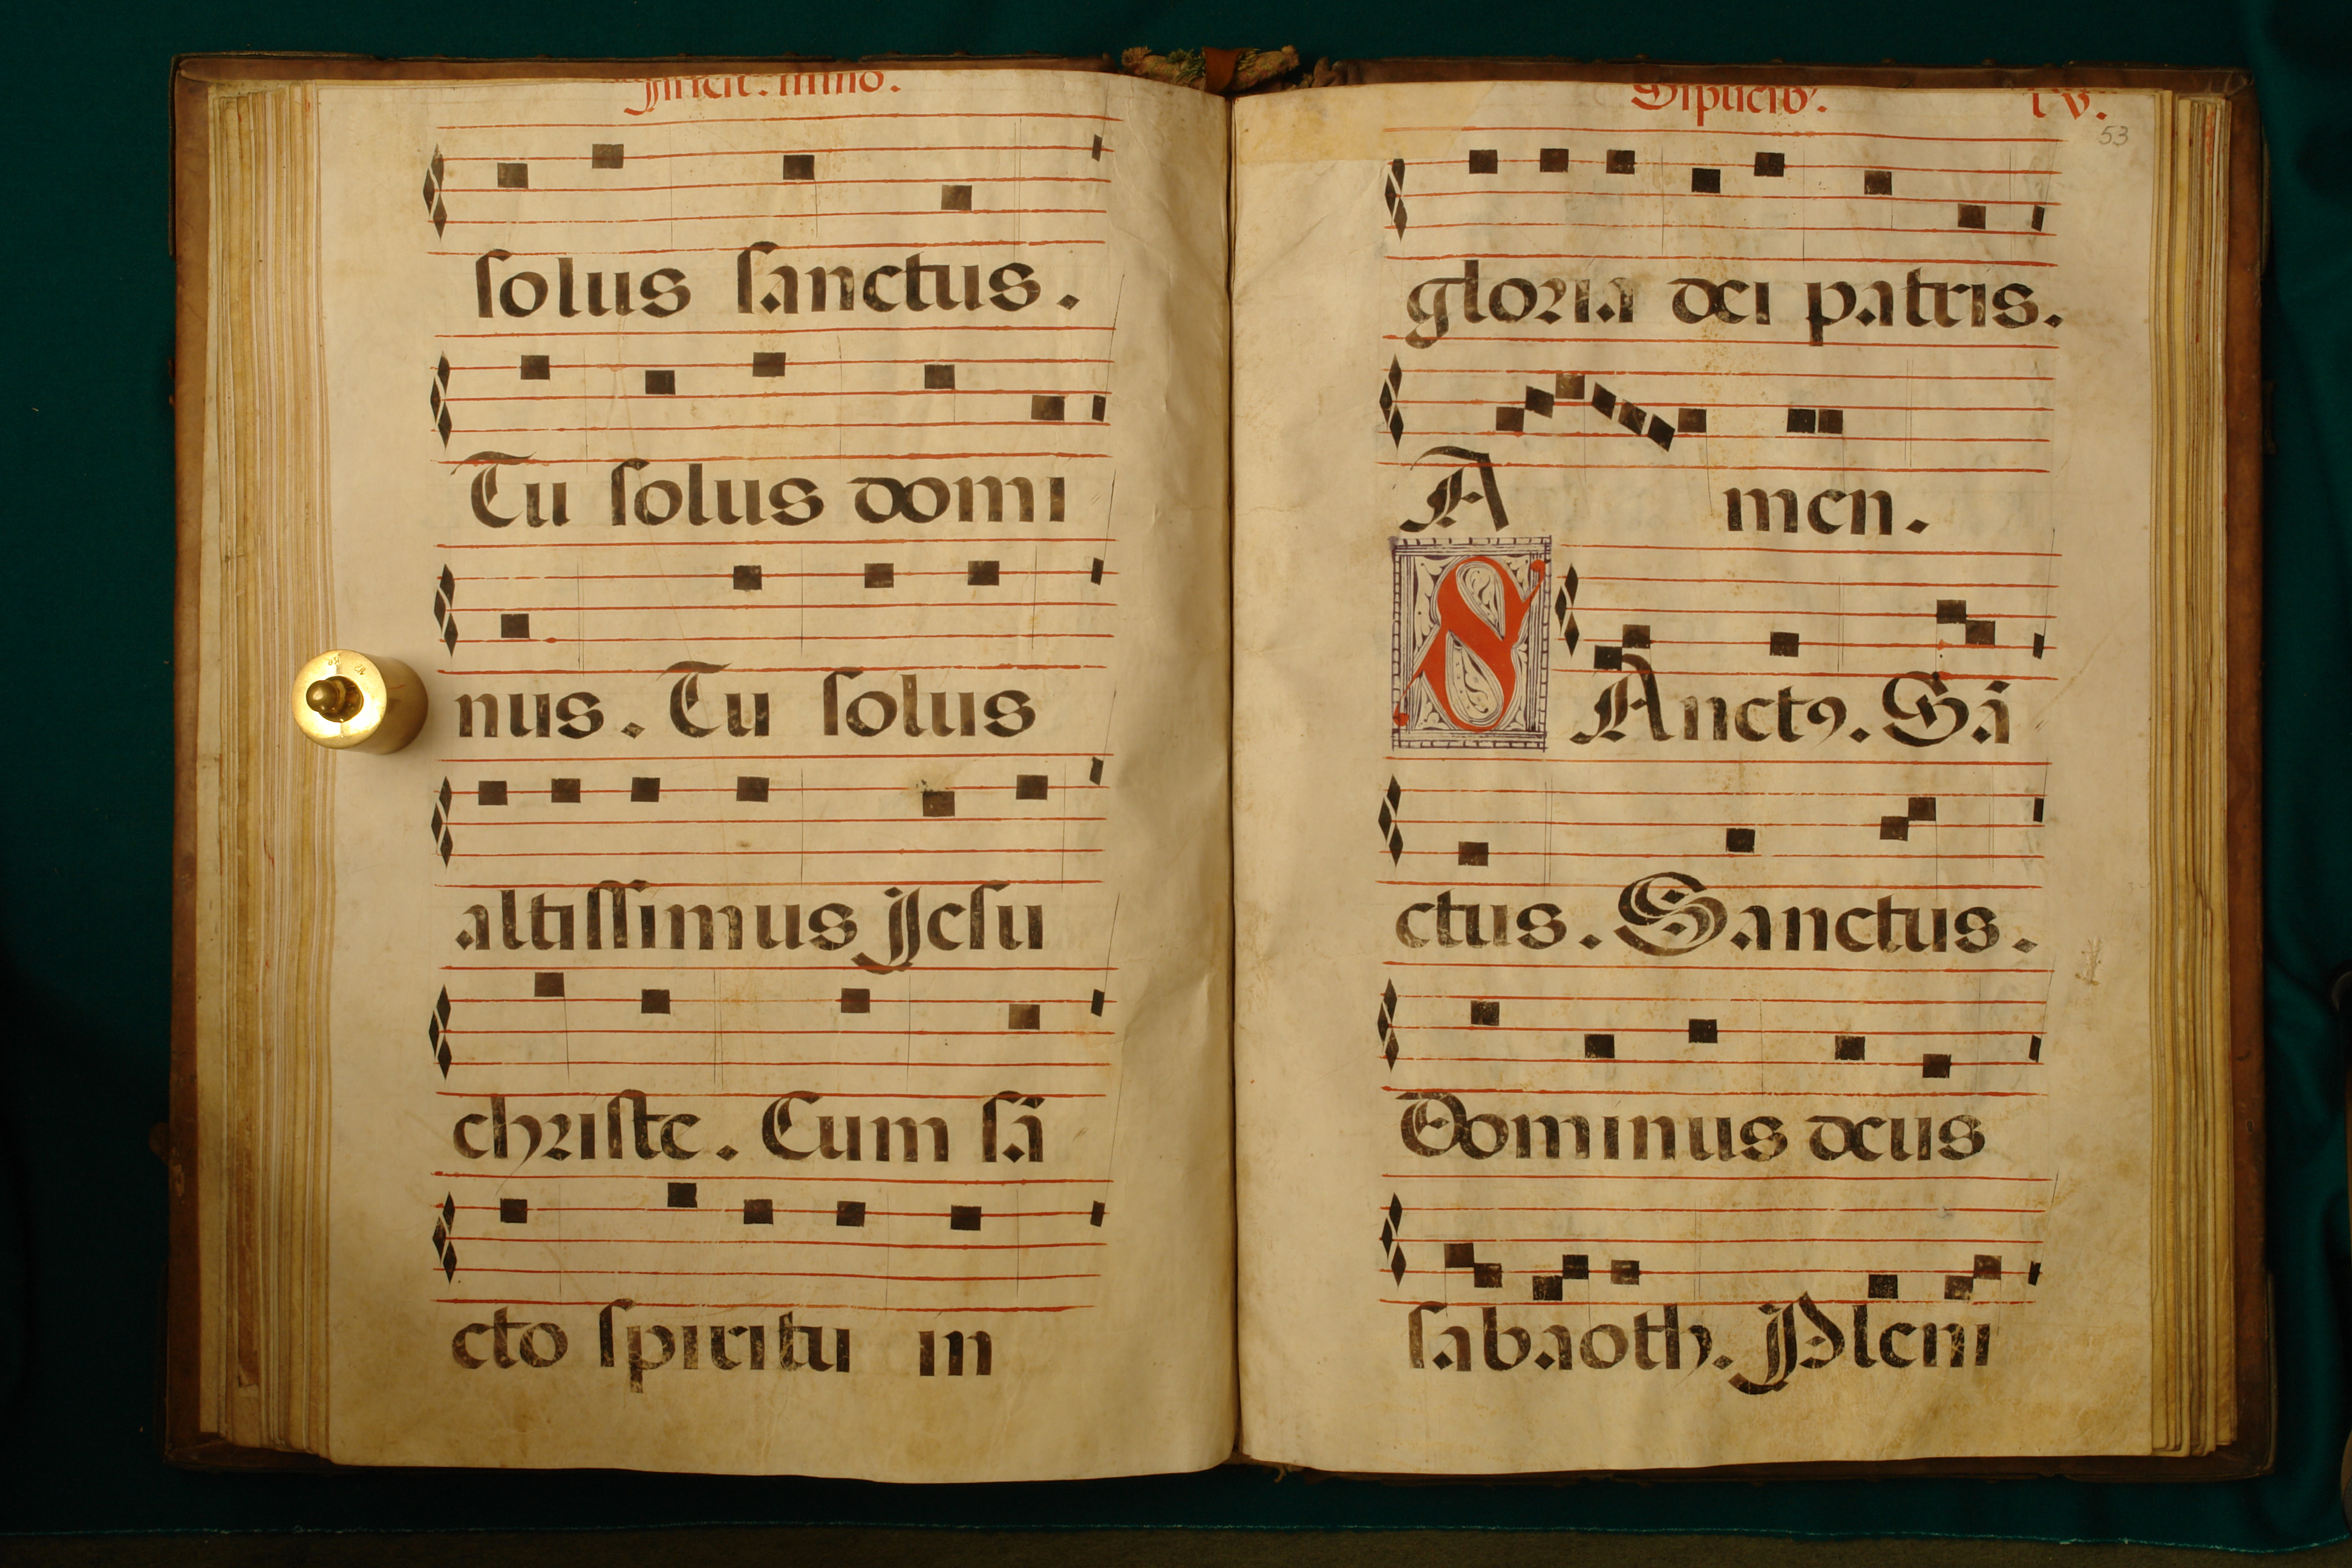 solus sanctus.
Tu solus domi
nus. Tu solus
altissimus Jesu
christe. Cum sā
cto spiritu in
53
gloria dei patris.
A men.
SAnctꝰ. Sā
ctus. Sanctus.
Dominus deus
sabaoth. Pleni